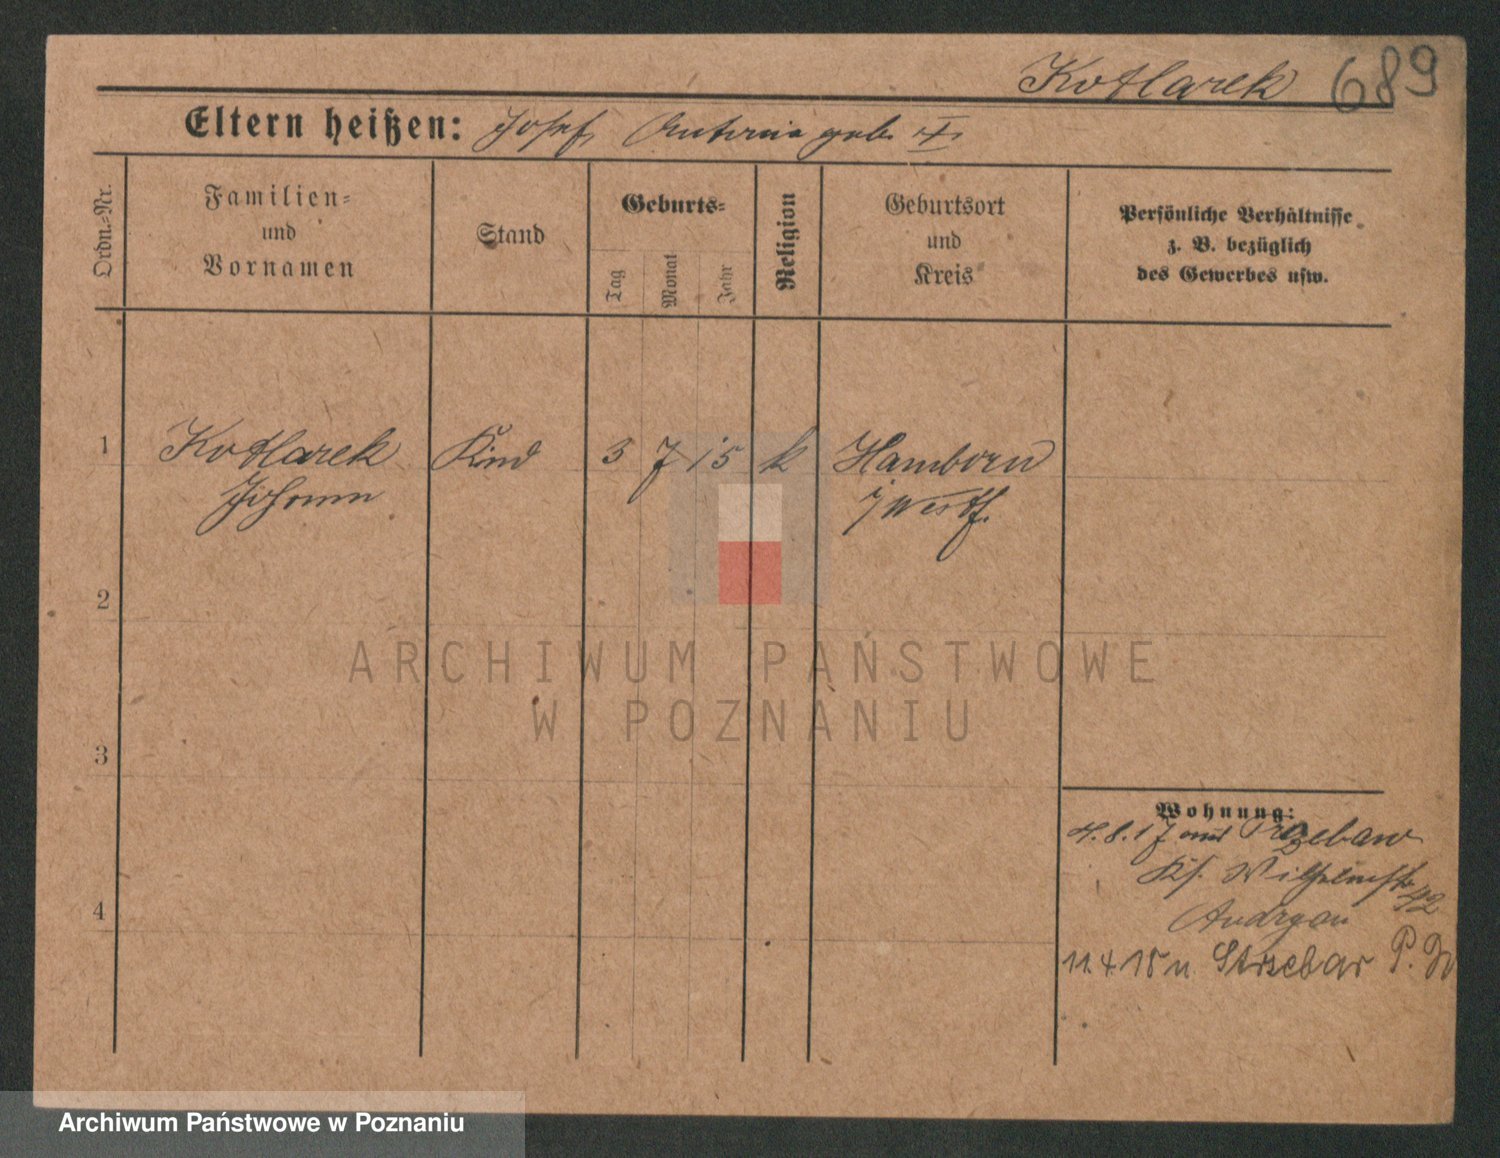 Kotlarek 689
Eltern heißen: Josef, Antonie geb. 
Ordn.=Nr.
Familien=
und
Vornamen
Stand
Geburts=
Tag
Monat
Jahr
Religion
Geburtsort
und
Kreis
Persönliche Verhältnisse
z. B. bezüglich
des Gewerbes usw.
1 Kotlarek Kind 3 7 15 k Hamborn
Johann i/Westf.
2
3
4
Wohnung:
4.8.17 aus
Wilhelmstr.
42
11.4.18 n. Strzebar P.
ARCHIWUM PAŃSTWOWE
W POZNANIU
Archiwum Państwowe w Poznaniu